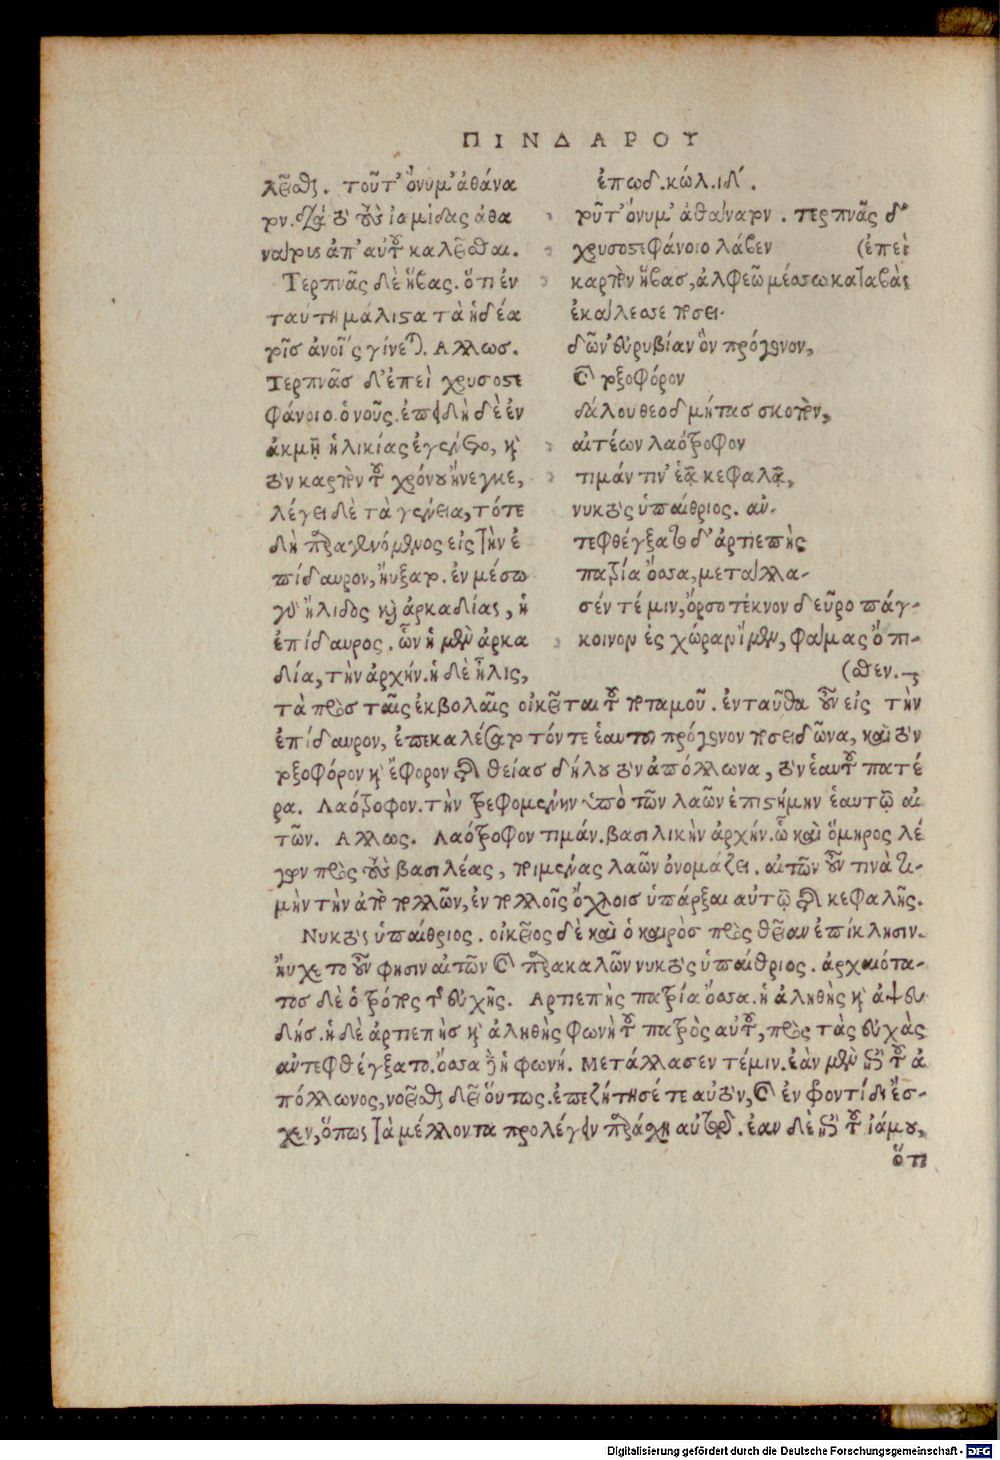 ΠΙΝΔΑΡΟΥ
λεῖσθαι. τοῦτ' ὄνυμ' ἀθάνα
τον. διὰ τὸ τοὺς ἰαμίδας ἀθα
νάτους ἀπ' αὐτοῦ καλεῖσθαι.
Τερπνᾶς δὲ ἥβας. ὅτι ἐν
ταύτῃ μάλιστα τὰ ἡδέα
τοῖς ἀνοις γίνεται. Αλλως.
Τερπνᾶσ δ' ἐπεὶ χρυσοστε
φάνοιο. ὁ νοῦς. ἐπειδὴ δὲ ἐν
ἀκμῇ ἡλικίας ἐγένετο, καὶ
τὸν καρπὸν τοῦ χρόνου ἤνεγκε,
λέγει δὲ τὰ γένεια, τότε
δὴ παραγενόμενος εἰς τὴν ἐ
πίδαυρον, ηὔξατο. ἐν μέσῳ
γὰρ ἤλιδος καὶ ἀρκαδίας, ἡ
ἐπίδαυρος. ὧν ἡ μὲν ἀρκα
δία, τὴν ἀρχήν. ἡ δὲ ἦλις,
ἐπωδ. κώλ. ιδ'.
τοῦτ' ὄνυμ' ἀθάνατον. τερπνᾶς δ'
χρυσοστεφάνοιο λάβεν (ἐπεὶ
καρπὸν ἥβασ, ἀλφεῶ μέσσω καταβὰς
ἐκάλεσσε ποσει-
δῶν' εὐρυβίαν ὃν πρόγονον,
καὶ τοξοφόρον
δάλου θεοδμήτασ σκοπὸν,
αἰτέων λαότροφον
τιμάν τιν' ἑᾷ κεφαλᾷ,
νυκτὸς ὑπαίθριος. αν-
τεφθέγξατο δ' ἀρτιεπὴς
πατρία ὄσσα, μετάλλα-
σέν τέ μιν, ὄρσο τέκνον δεῦρο πάγ-
κοινον ἐς χώραν ἴμεν, φάμας ὄπι-
(σθεν.
τὰ πρὸς ταῖς ἐκβολαῖς οἰκεῖται τοῦ ποταμοῦ. ἐνταῦθα οὖν εἰς τὴν
ἐπίδαυρον, ἐπεκαλέσατο τόν τε ἑαυτου πρόγονον ποσειδῶνα, καὶ τὸν
τοξοφόρον καὶ ἔφορον τῆς θείασ δήλου τὸν ἀπόλλωνα, τὸν ἑαυτοῦ πατέ
ρα. Λαότροφον. τὴν τρεφομένην ὑπὸ τῶν λαῶν ἐπιστήμην ἑαυτῷ αἰ
τῶν. Αλλως. Λαότροφον τιμάν. βασιλικὴν ἀρχήν. ὧ καὶ ὅμηρος λέ
γων πρὸς τοὺς βασιλέας, ποιμένας λαῶν ὀνομάζει. αἰτῶν οὖν τινὰ τι-
μὴν τὴν ἀπὸ πολλῶν, ἐν πολλοῖς ὄχλοισ ὑπάρξαι αὐτῷ τῆς κεφαλῆς.
Νυκτὸς ὑπαίθριος. οἰκεῖος δὲ καὶ ὁ καιρὸσ πρὸς θεῖαν ἐπίκλησιν.
ηὔχετο οὖν φησιν αἰτῶν καὶ παρακαλῶν νυκτὸς ὑπαίθριος. ἀρχαιότα-
τος δὲ ὁ τρόπος τῆς εὐχῆς. Αρτιεπὴς πατρία ὄσσα. ἡ ἀληθὴς καὶ ἀψευ
δής. ἡ δὲ ἀρτιεπὴσ καὶ ἀληθὴς φωνὴ τοῦ πατρὸς αὐτοῦ, πρὸς τὰς εὐχὰς
αὐτεφθέγξατο. ὄσσα γὰρ ἡ φωνή. Μετάλλασεν τέ μιν. ἐὰν μὲν ἐπὶ τοῦ ἀ
πόλλωνος, νοεῖσθαι δεῖ οὕτως. ἐπεζήτησέ τε αὐτὸν, καὶ ἐν φροντίδι ἔσ-
χεν, ὅπως τὰ μέλλοντα προλέγειν παράσχῃ αὐτῷ. ἐαν δὲ ἐπὶ τοῦ ἰάμου,
ὅτι
Digitalisierung gefördert durch die Deutsche Forschungsgemeinschaft - DFG